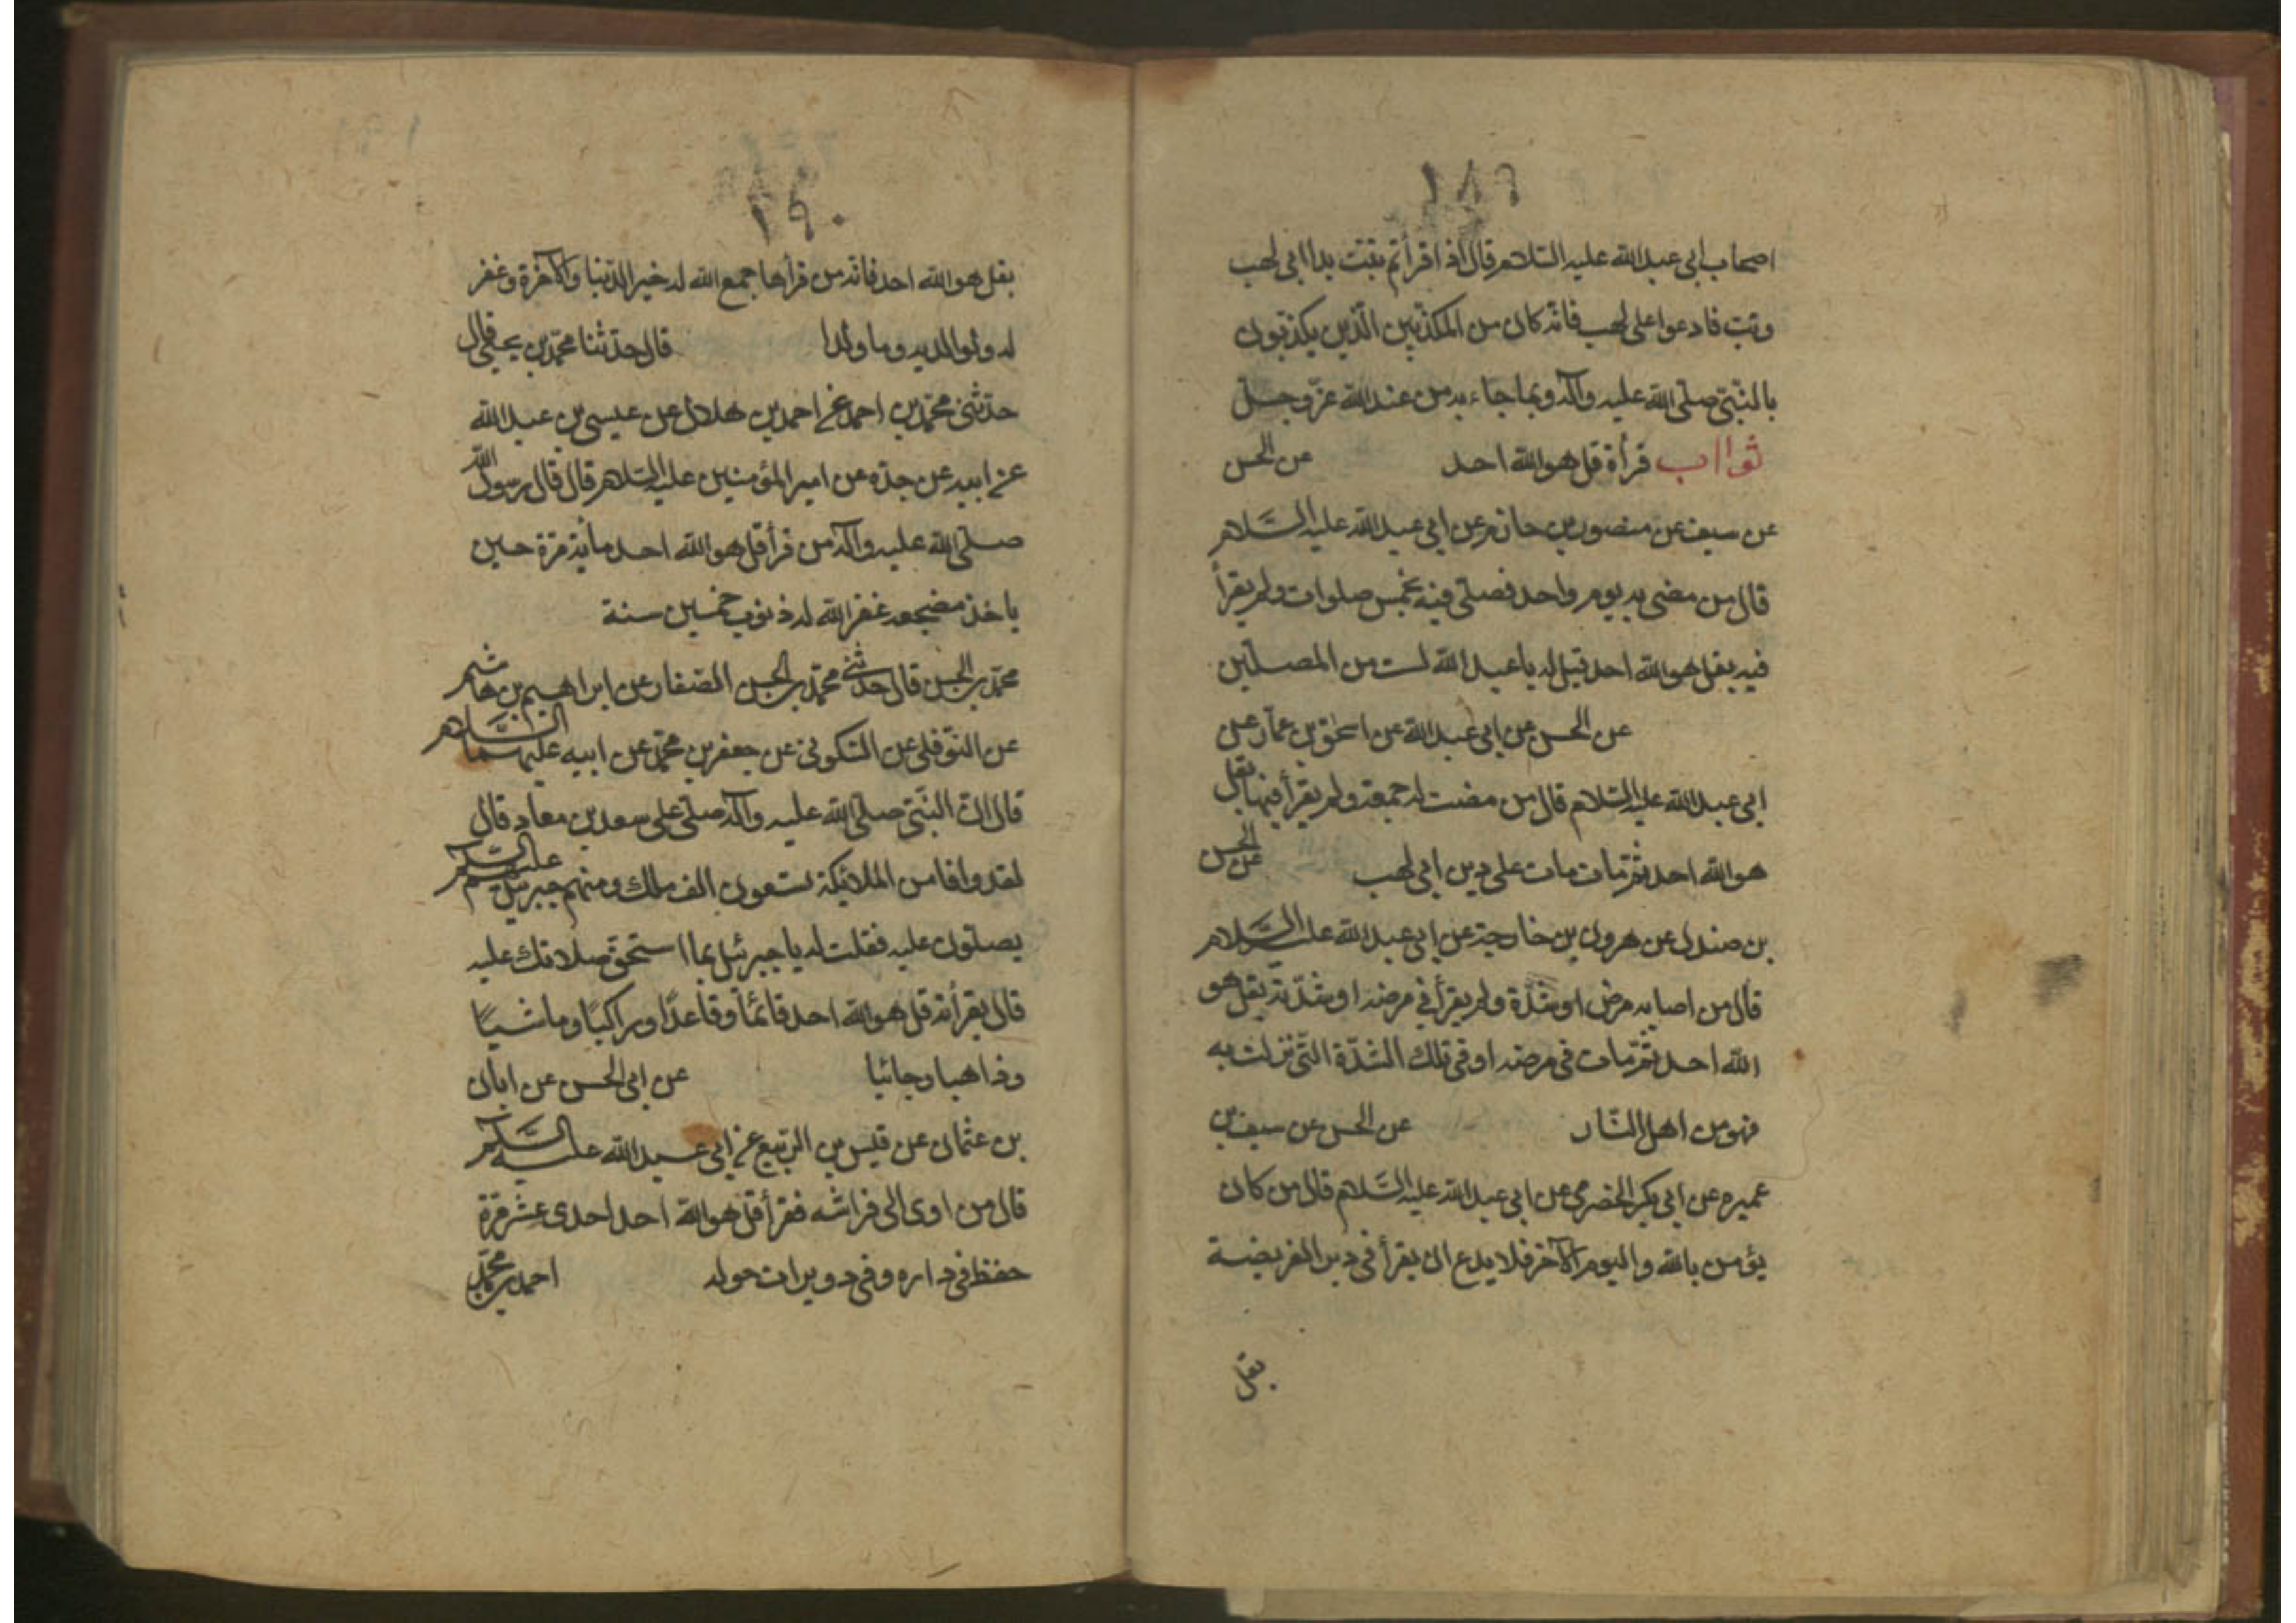 ١٨٩
اصحاب ابى عبد الله عليه السّلام قال اذا قرأتم تبّت يدا ابى لهب
وتبّ فادعوا على لهب فانّه كان من المكذّبين الّذين يكذّبون
بالنّبىّ صلّى الله عليه وآله وبما جاء به من عند الله عزّ وجلّ
ثوااب قرأة قل هو الله احد عن الحسن
عن سيف عن منصور بن حازم عن ابى عبد الله عليه السّلام
قال من مضى به يوم واحد فصلّى فيه بخمس صلوات ولم يقرأ
فيه بقل هو الله احد قيل له يا عبد الله لست من المصلّين
عن الحسن عن ابى عبد الله عن اسحق بن عمّار عن
ابى عبد الله عليه السّلام قال من مضت له جمعة ولم يقرأ فيها بقل
هو الله احد ثمّ مات مات على دين ابى لهب عن الحسن
بن صندل عن هرون بن خارجة عن ابى عبد الله عليه السّلام
قال من اصابه مرض او شدّة ولم يقرأ فى مرضه او شدّته بقل هو
الله احد ثمّ مات فى مرضه او فى تلك الشدّة الّتى نزلت به
فهو من اهل النّار عن الحسن عن سيف بن
عميره عن ابى بكر الحضرمى عن ابى عبد الله عليه السّلام قال من كان
يؤمن بالله واليوم الآخر فلا يدع ان يقرأ فى دبر الفريضة
بقل
١٩٠
بقل هو الله احد فانّه من قرأها جمع الله له خير الدّنيا والآخرة وغفر
له ولوالديه وما ولدا قال حدّثنا محمّد بن يحيى قال
حدّثنى محمّد بن احمد عن احمد بن هلال عن عيسى بن عبد الله
عن ابيه عن جدّه عن امير المؤمنين عليه السّلام قال قال رسول الله
صلّى الله عليه وآله من قرأ قل هو الله احد مأية مرّة حين
ياخذ مضجعه غفر الله له ذنوب خمسين سنة
محمّد بن الحسن قال حدثنى محمّد بن الحسن الصّفار عن ابراهيم بن هاشم
عن النّوفلى عن السّكونى عن جعفر بن محمّد عن ابيه عليهما السّلام
قال انّ النّبىّ صلّى الله عليه وآله صلّى على سعد بن معاد قال
لقد وافا من الملائكة تسعون الف ملك ومنهم جبرئيل عليه السّلم
يصلّون عليه فقلت له يا جبرئيل بما استحقّ صلاتك عليه
قال بقرأته قل هو الله احد قائمًا وقاعدًا وراكبًا وماشيًا
وذاهبا وجائيا عن ابى الحسن عن ابان
بن عثمان عن قيس بن الرّبيع عن ابى عبد الله عليه السّلم
قال من اوى الى فراشه فقرأ قل هو الله احد احدى عشر مرّة
حفظ فى داره وفى دويرات حوله احمد بن محمّد